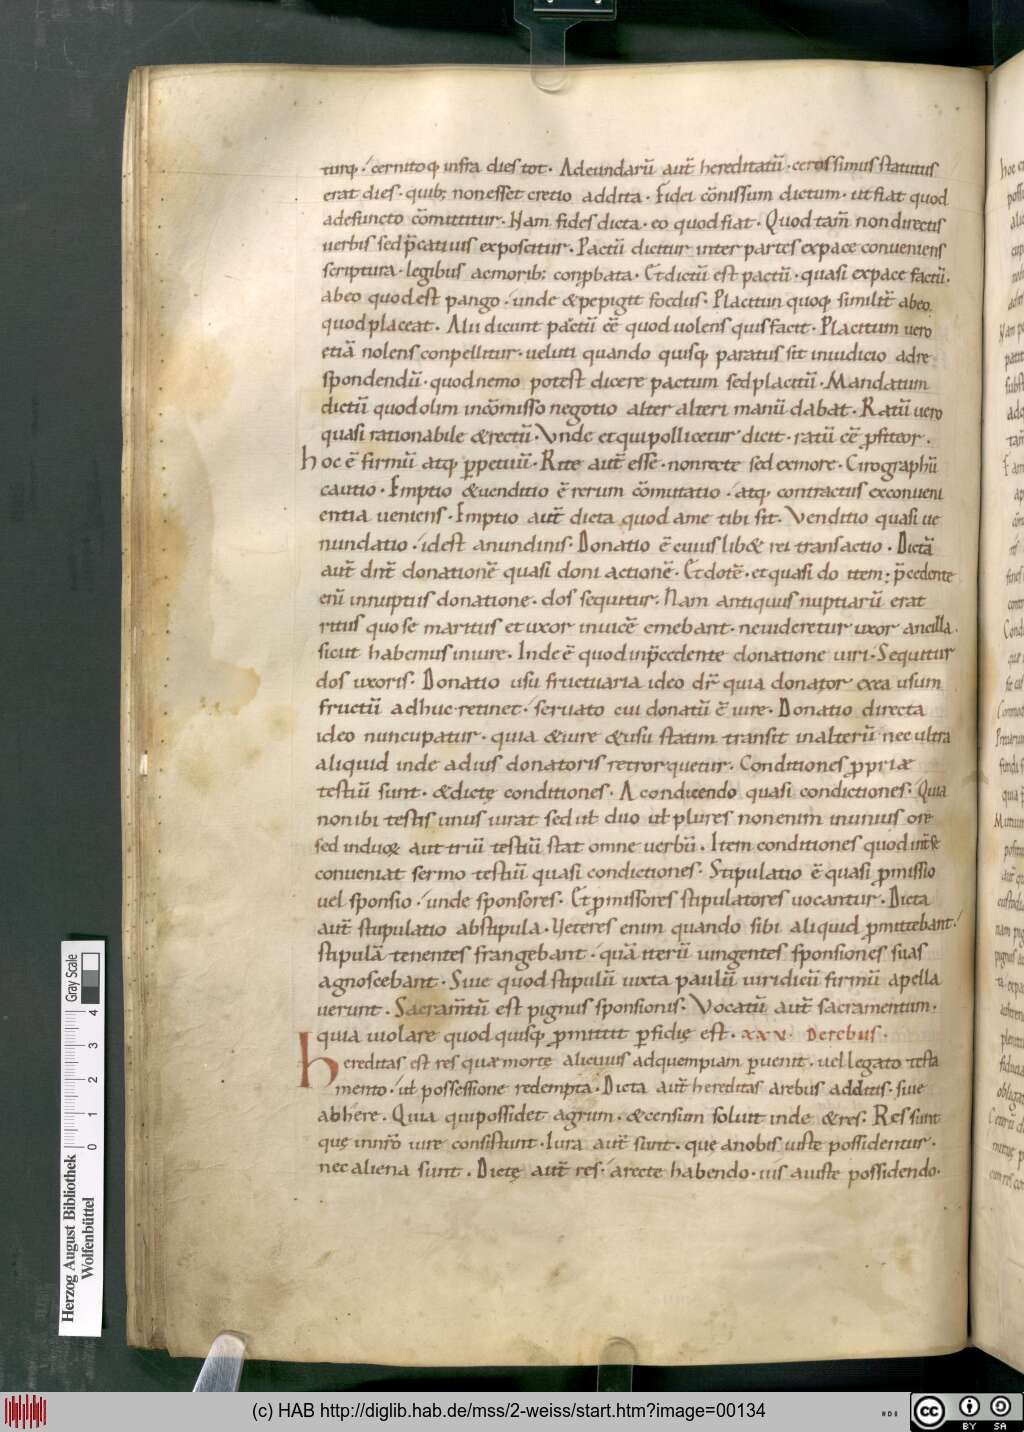 turq; cernitoq; infra dies tot. Adeundarū aut̄ hereditatū. certissimus statutus
erat dies. quib; non esset cretio addita. Fidei cōmissum dictum. ut fiat quod
adefuncto cōmittitur. Nam fides dicta. eo quod fiat. Quod tam̄ non directis
uerbis sed p̄catiuis exposcitur. Pactū dicitur inter partes expace conueniens
scriptura. legibus acmorib; conpbata. Et dictū est pactū. quasi expace factū.
abeo quod est pango. unde &pepigit foedus. Placitum quoq; similit̄ abeo.
quod placeat. Alii dicunt pactū ēē quod uolens quis facit. Placitum uero
etiā nolens conpellitur. ueluti quando quisq; paratus sit iniudicio adre
spondendū. quod nemo potest dicere pactum sed placitū. Mandatum
dictū quod olim incōmisso negotio alter alteri manū dabat. Ratū uero
quasi rationabile &rectū. Vnde et qui pollicetur dicit. ratū ēē pfiteor.
hoc ē firmū atq; ppetuū. Rite aut̄ esse. non recte sed exmore. Cirographū
cautio. Emptio &uenditio ē rerum cōmutatio. atq; contractus exconueni
entia ueniens. Emptio aut̄ dicta quod ame tibi sit. Venditio quasi ue
nundatio. id est anundinis. Donatio ē cuius lib& rei transactio. Dictā
aut̄ dn̄t donationē quasi doni actionē. Et dotē. et quasi do item; p̄cedente
enī innuptiis donatione. dos sequitur. Nam antiquus nuptiarū erat
ritus quo se maritus et uxor inuicē emebant. ne uideretur uxor ancilla.
sicut habemus iniure. Inde ē quod inp̄cedente donatione uiri. Sequitur
dos uxoris. Donatio usu fructuaria ideo dr̄ quia donator exea usum
fructū adhuc retinet. seruato cui donatū ē iure. Donatio directa
ideo nuncupatur. quia &iure &usu statim transit inalterū nec ultra
aliquid inde adius donatoris retrorquetur. Conditiones ppriæ
testiū sunt. &dictę conditiones. A condicendo quasi condictiones. Quia
non ibi testis unus iurat sed ut̄ duo ut̄ plures non enim inunius ore
sed induoꝝ aut triū testiū stat omne uerbū. Item conditiones quod int̄ se
conueniat sermo testiū quasi condictiones. Stipulatio ē quasi pmissio
uel sponsio. unde sponsores. Et pmissores stipulatores uocantur. Dicta
aut̄ stipulatio abstipula. Veteres enim quando sibi aliquid pmittebant.
stipulā tenentes frangebant. quā iterū iungentes sponsiones suas
agnoscebant. Siue quod stipulū iuxta paulū iuridicū firmū apella
uerunt. Sacram̄tū est pignus sponsionis. Vocatū aut̄ sacramentum.
quia uiolare quod quisq; pmittit pfidię est. xxv. Derebus.
hereditas est res quæ mortę alicuius adquempiam puenit. uel legato testa
mento. ut̄ possessione redempta. Dicta aut̄ hereditas arebus aditis. siue
abhere. Quia qui possidet agrum. &censum soluit inde &res. Res sunt
quę innr̄o iure consistunt. Iura aut̄ sunt. quę anobis iuste possidentur.
nec aliena sunt. Dictę aut̄ res. arecte habendo. ius aiuste possidendo.
Herzog August Bibliothek
Wolfenbüttel
Gray Scale
0 1 2 3 4
(c) HAB http://diglib.hab.de/mss/2-weiss/start.htm?image=00134
cc BY SA